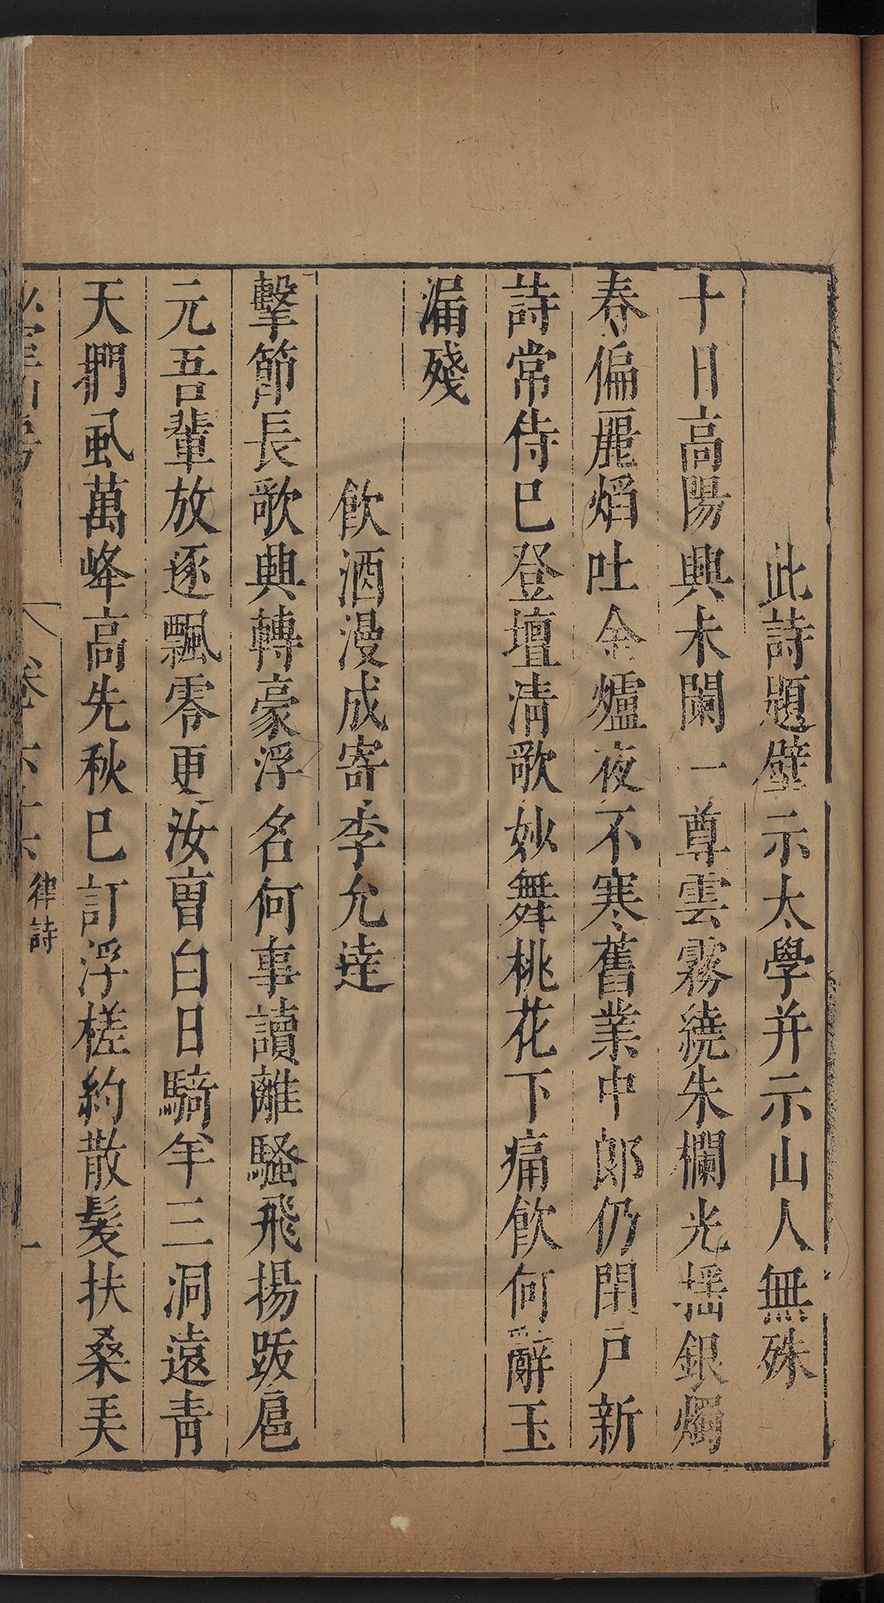 此詩題壁示太學并示山人無殊
十日高陽興未闌一尊雲霧繞朱欄光揺銀燭
春偏麗熖吐金爐夜不寒舊業中郎仍閉戸新
詩常侍巳登壇淸歌妙舞桃花下痛飲何辭玉
漏殘
飲酒漫成寄李允達
擊節長歌興轉豪浮名何事讀離騷飛揚跋扈
元吾輩放逐飄零更汝曹白日騎羊三洞遠靑
天捫虱萬峰高先秋巳訂浮槎約散髮扶桑美
卷六十六 律詩 一